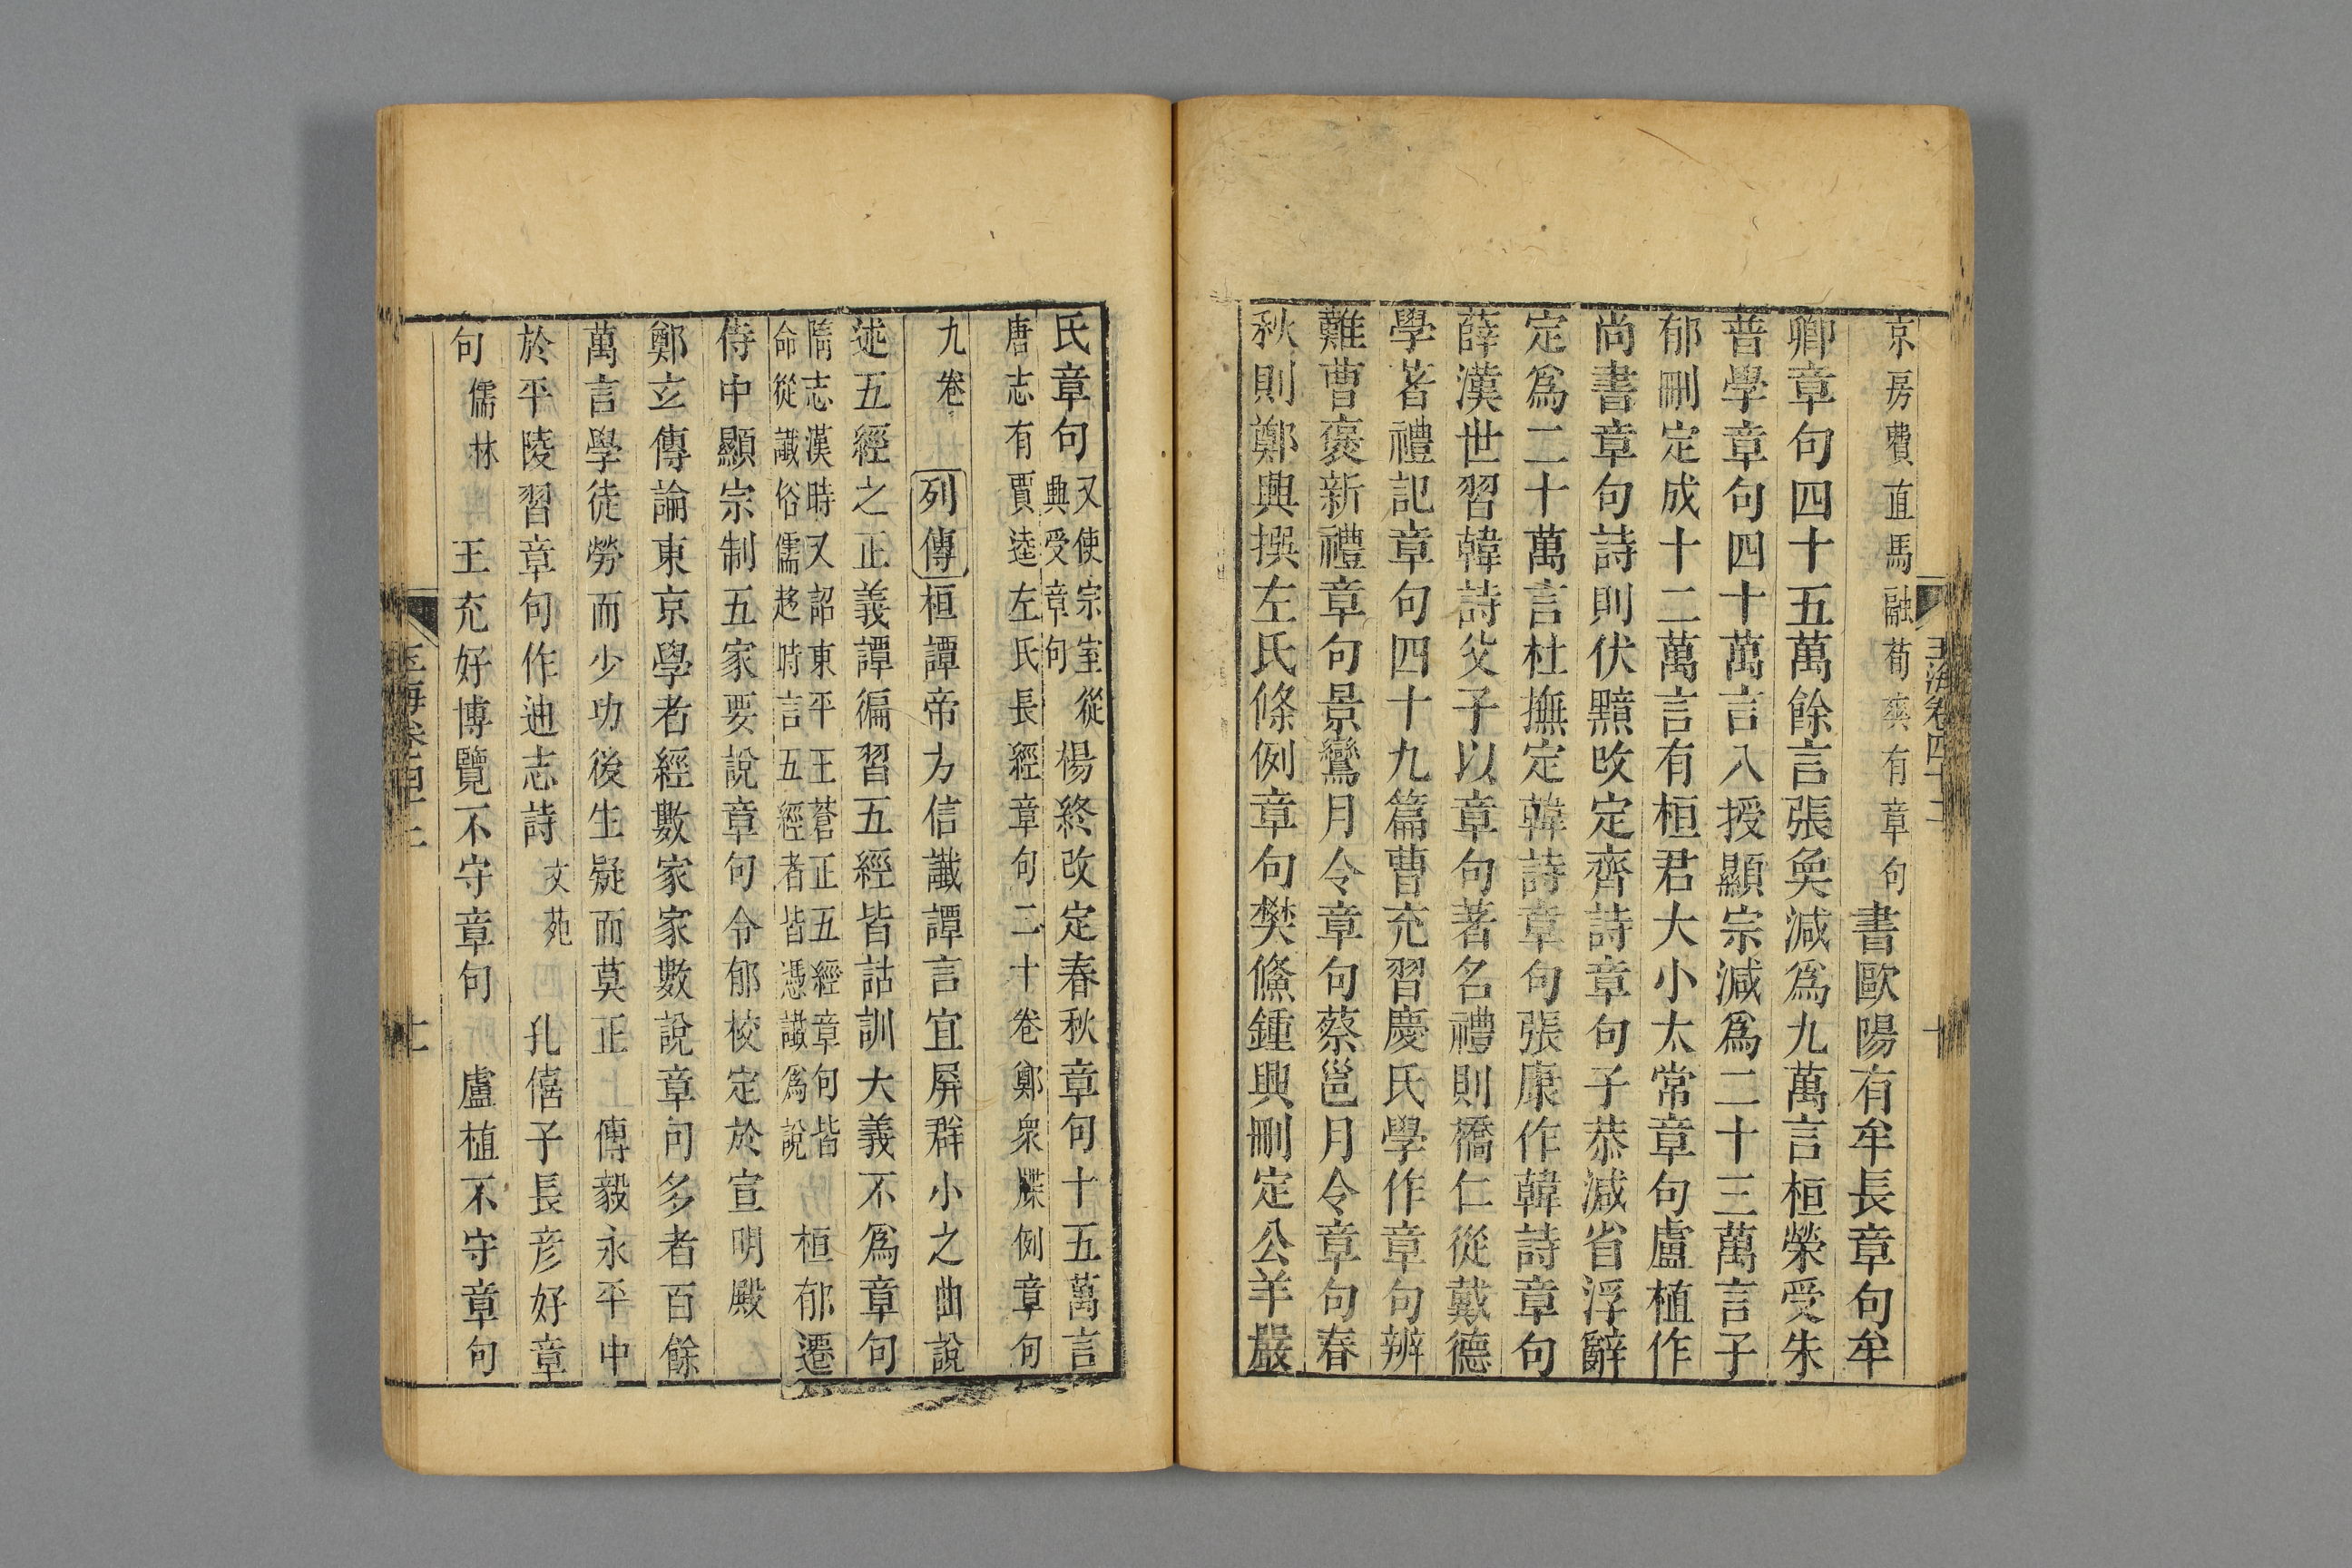 玉海卷四十二
十
京房費直馬融荀爽有章句書歐陽有牟長章句牟
卿章句四十五萬餘言張奐減爲九萬言桓榮受朱
普學章句四十萬言入授顯宗減爲二十三萬言子
郁刪定成十二萬言有桓君大小太常章句盧植作
尚書章句詩則伏黯改定齊詩章句子恭減省浮辭
定爲二十萬言杜撫定韓詩章句張康作韓詩章句
薛漢世習韓詩父子以章句著名禮則橋仁從戴德
學著禮記章句四十九篇曹充習慶氏學作章句辨
難曹褒新禮章句景鸞月令章句蔡邕月令章句春
秋則鄭興撰左氏條例章句樊鯈鍾興刪定公羊嚴
氏章句又使宗室從興受章句楊終改定春秋章句十五萬言
唐志有賈逵左氏長經章句二十卷鄭衆牒例章句
九卷列傳桓譚帝方信讖譚言宜屏群小之曲說
述五經之正義譚徧習五經皆詁訓大義不爲章句
隋志漢時又詔東平王蒼正五經章句皆
命從讖俗儒趍時言五經者皆憑讖爲說桓郁遷
侍中顯宗制五家要說章句令郁校定於宣明殿
鄭玄傳論東京學者經數家家數說章句多者百餘
萬言學徒勞而少功後生疑而莫正傳毅永平中
於平陵習章句作迪志詩文苑孔僖子長彥好章
句儒林王充好博覽不守章句盧植不守章句